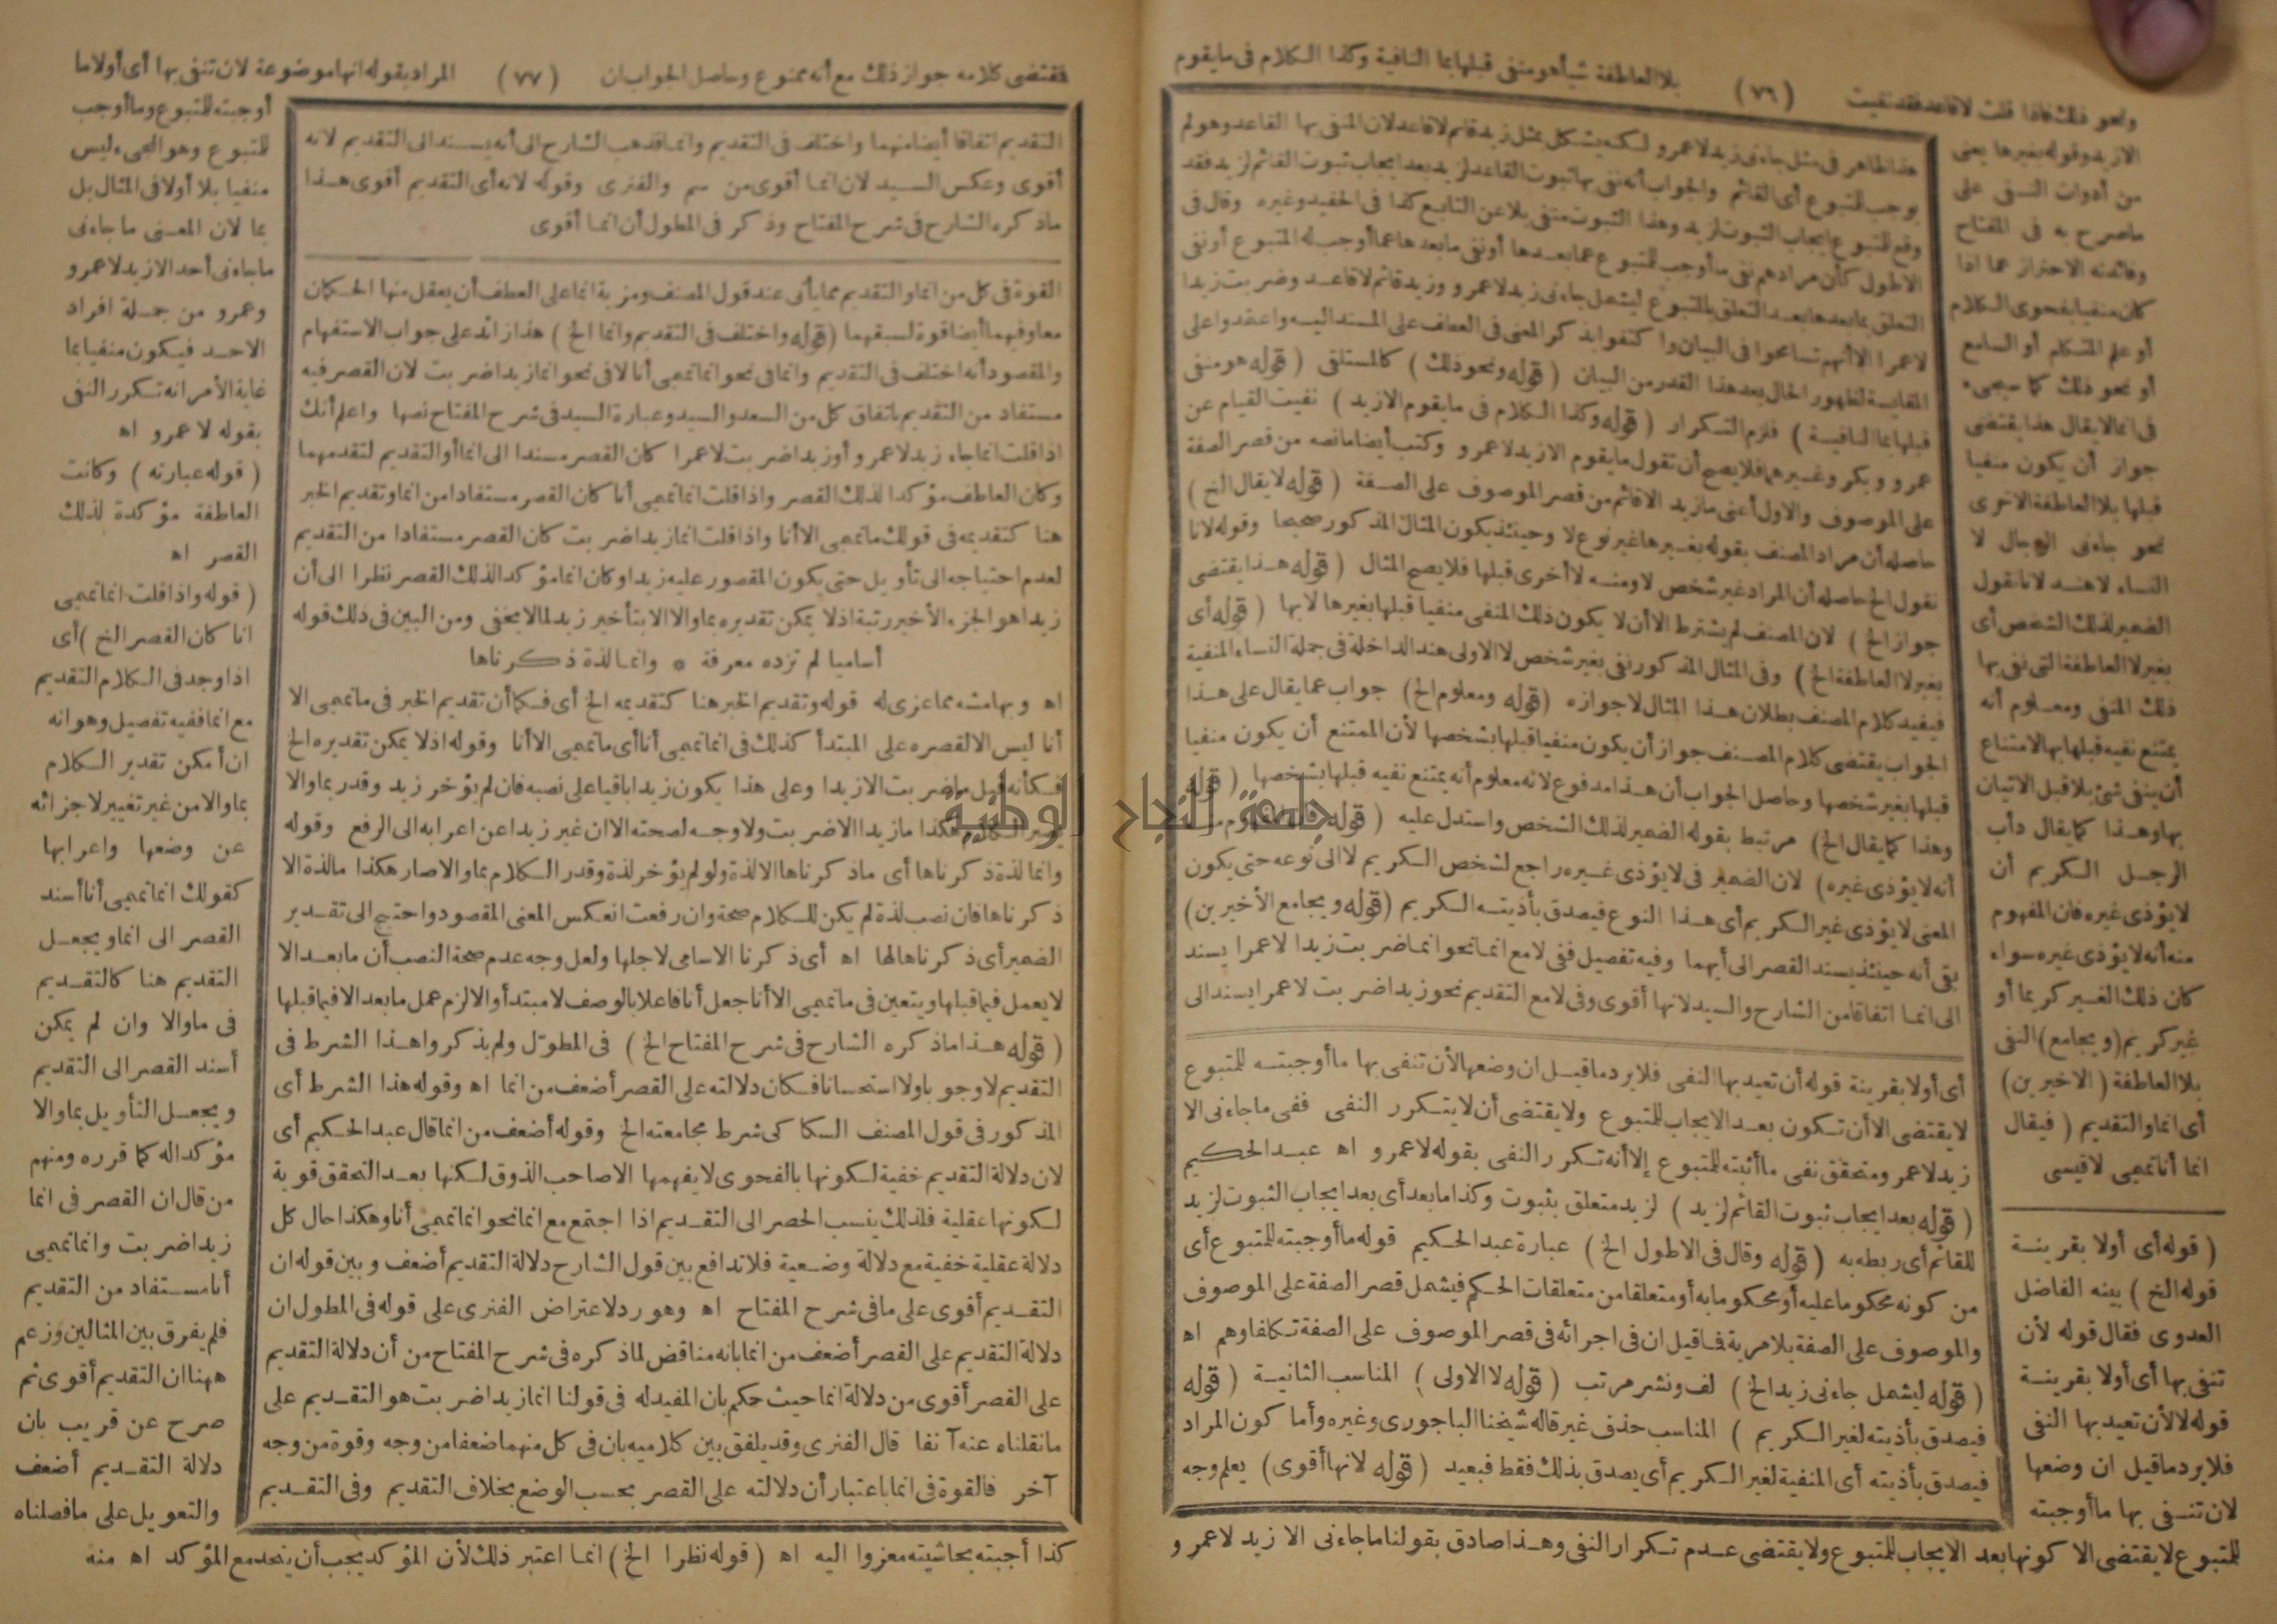 بلا العاطفة شيأ هو منفى قبلها بما النافية وكذا الكلام فى ما يقوم
(٧٦)
ونحو ذلك فاذا قلت لا قاعد فقد نفيت
هذا ظاهر فى مثل جاءنى زيد لا عمرو لكنه يشكل بمثل زيد قائم لا قاعد لان المنفى بها القاعد وهو لم
يوجب للمتبوع أى القائم والجواب أنه نفى بها ثبوت القاعد لزيد بعد ايجاب ثبوت القائم لزيد فقد
وقع للمتبوع ايجاب الثبوت لزيد وهذا الثبوت منفى بلا عن التابع كذا فى الحفيد وغيره وقال فى
الاطول كأن مرادهم نفى ما أوجب للمتبوع عما بعدها أو نفى ما بعدها عما أوجب له المتبوع أو نفى
التعلق بما بعدها بعد التعلق بالمتبوع ليشمل جاءنى زيد لا عمرو وزيد قائم لا قاعد وضربت زيدا
لا عمرا الا أنهم تسامحوا فى البيان واكتفوا بذكر المعنى فى العطف على المسند اليه واعتمدوا على
المقايسة لظهور الحال بعد هذا القدر من البيان (قوله ونحو ذلك) كالمستلقى (قوله هو منفى
قبلها بما النافية) فلزم التكرار (قوله وكذا الكلام فى ما يقوم الا زيد) نفيت القيام عن
عمرو وبكر وغيرهما فلا يصح أن تقول ما يقوم الا زيد لا عمرو وكتب أيضا ما نصه من قصر الصفة
على الموصوف والاول أعنى ما زيد الا قائم من قصر الموصوف على الصفة (قوله لا يقال الخ)
حاصله أن مراد المصنف بقوله بغيرها غير نوع لا وحينئذ يكون المثال المذكور صحيحا وقوله لانا
نقول الخ حاصله أن المراد غير شخص لا ومنه لا أخرى قبلها فلا يصح المثال (قوله هذا يقتضى
جواز الخ) لان المصنف لم يشترط الا أن لا يكون ذلك المنفى منفيا قبلها بغيرها لا بها (قوله أى
بغير لا العاطفة الخ) وفى المثال المذكور نفى بغير شخص لا الاولى هند الداخلة فى جملة النساء المنفية
فيفيد كلام المصنف بطلان هذا المثال لا جوازه (قوله ومعلوم الخ) جواب عما يقال على هذا
الجواب يقتضى كلام المصنف جواز أن يكون منفيا قبلها بشخصها لأن الممتنع أن يكون منفيا
قبلها بغير شخصها وحاصل الجواب أن هذا مدفوع لانه معلوم أنه يمتنع نفيه قبلها بشخصها (قوله
وهذا كما يقال الخ) مرتبط بقوله الضمير لذلك الشخص واستدل عليه (قوله فان المفهوم منه
أنه لا يؤذى غيره) لان الضمير فى لا يؤذى غيره راجع لشخص الكريم لا الى نوعه حتى يكون
المعنى لا يؤذى غير الكريم أى هذا النوع فيصدق بأذيته الكريم (قوله ويجامع الأخيرين)
بقى أنه حينئذ يسند القصر الى أيهما وفيه تفصيل ففى لا مع انما نحو انما ضربت زيدا لا عمرا يسند
الى انما اتفاقا من الشارح والسيد لانها أقوى وفى لا مع التقديم نحو زيدا ضربت لا عمرا يسند الى
أى أولا بقرينة قوله أن تعيد بها النفى فلا يرد ما قيل ان وضعها لأن تنفى بها ما أوجبته للمتبوع
لا يقتضى الا أن تكون بعد الايجاب للمتبوع ولا يقتضى أن لا يتكرر النفى ففى ما جاءنى الا
زيد لا عمرو متحقق نفى ما أثبته للمتبوع إلا أنه تكرر النفى بقوله لا عمرو اه عبد الحكيم
(قوله بعد ايجاب ثبوت القائم لزيد) لزيد متعلق بثبوت وكذا ما بعد أى بعد ايجاب الثبوت لزيد
للقائم أى ربطه به (قوله وقال فى الاطول الخ) عبارة عبد الحكيم قوله ما أوجبته للمتبوع أى
من كونه محكوما عليه أو محكوما به أو متعلقا من متعلقات الحكم فيشمل قصر الصفة على الموصوف
والموصوف على الصفة بلا مرية فما قيل ان فى اجرائه فى قصر الموصوف على الصفة تكلفا وهم اه
(قوله ليشمل جاءنى زيد الخ) لف ونشر مرتب (قوله لا الاولى) المناسب الثانية (قوله
فيصدق بأذيته لغير الكريم) المناسب حذف غير قاله شيخنا الباجورى وغيره وأما كون المراد
فيصدق بأذيته أى المنفية لغير الكريم أى يصدق بذلك فقط فبعيد (قوله لانها أقوى) يعلم وجه
الا زيد وقوله بغيرها يعنى
من أدوات النفى على
ما صرح به فى المفتاح
وفائدته الاحتراز عما اذا
كان منفيا بفحوى الكلام
أو علم المتكلم أو السامع
أو نحو ذلك كما سيجىء
فى انما لا يقال هذا يقتضى
جواز أن يكون منفيا
قبلها بلا العاطفة الاخرى
نحو جاءنى الرجال لا
النساء لا هند لانا نقول
الضمير لذلك الشخص أى
بغير لا العاطفة التى نفى بها
ذلك المنفى ومعلوم أنه
يمتنع نفيه قبلها بها لامتناع
أن ينفى شئ بلا قبل الاتيان
بها وهذا كما يقال دأب
الرجل الكريم أن
لا يؤذى غيره فان المفهوم
منه أنه لا يؤذى غيره سواء
كان ذلك الغير كريما أو
غير كريم (ويجامع) النفى
بلا العاطفة (الاخيرين)
أى انما والتقديم (فيقال
انما أنا تميمى لا قيسى
(قوله أى أولا بقرينة
قوله الخ) بينه الفاضل
العدوى فقال قوله لأن
تنفى بها أى أولا بقرينة
قوله لا لأن تعيد بها النفى
فلا يرد ما قيل ان وضعها
لان تنفى بها ما أوجبته
للمتبوع لا يقتضى الا كونها بعد الايجاب للمتبوع ولا يقتضى عدم تكرار النفى وهذا صادق بقولنا ما جاءنى الا زيد لا عمرو و
فقتضى كلامه جواز ذلك مع أنه ممنوع وحاصل الجواب ان
(٧٧)
المراد بقوله انها موضوعة لان تنفى بها أى أولا ما
التقديم اتفاقا أيضا منهما واختلف فى التقديم وانما فذهب الشارح الى أنه يسند الى التقديم لانه
أقوى وعكس السيد لان انما أقوى من سم والفنرى وقوله لانه أى التقديم أقوى هذا
ما ذكره الشارح فى شرح المفتاح وذكر فى المطول أن انما أقوى
القوة فى كل من انما والتقديم مما يأتى عند قول المصنف ومزية انما على العطف أن يعقل منها الحكمان
معا وفيهما أيضا قوة لسبقهما (قوله واختلف فى التقديم وانما الخ) هذا زائد على جواب الاستفهام
والمقصود أنه اختلف فى التقديم وانما فى نحو انما تميمى أنا لا فى نحو انما زيدا ضربت لان القصر فيه
مستفاد من التقديم باتفاق كل من السعد والسيد وعبارة السيد فى شرح المفتاح نصها واعلم أنك
اذا قلت انما جاء زيد لا عمرو أو زيدا ضربت لا عمرا كان القصر مسندا الى انما أو التقديم لتقدمهما
وكان العاطف مؤكدا لذلك القصر واذا قلت انما تميمى أنا كان القصر مستفادا من انما وتقديم الخبر
هنا كتقديمه فى قولك ما تميمى الا أنا واذا قلت انما زيدا ضربت كان القصر مستفادا من التقديم
لعدم احتياجه الى تأويل حتى يكون المقصور عليه زيدا وكان انما مؤكدا لذلك القصر نظرا الى أن
زيدا هو الجزء الأخير رتبة اذ لا يمكن تقديره بما والا الا بتأخير زيد لما لا يخفى ومن البين فى ذلك قوله
أساميا لم تزده معرفة * وانما لذة ذكرناها
اه وبهامشه مما عزى له قوله وتقديم الخبر هنا كتقديمه الخ أى فكما أن تقديم الخبر فى ما تميمى الا
أنا ليس الا لقصره على المبتدأ كذلك فى انما تميمى أنا أى ما تميمى الا أنا وقوله اذ لا يمكن تقديره الخ
فكأنه قيل ما ضربت الا زيدا وعلى هذا يكون زيدا باقيا على نصبه فان لم يؤخر زيد وقدر بما والا
يصير الكلام هكذا ما زيدا الا ضربت ولا وجه لصحته الا ان غير زيدا عن اعرابه الى الرفع وقوله
وانما لذة ذكرناها أى ما ذكرناها الا لذة ولو لم يؤخر لذة وقدر الكلام بما والا صار هكذا ما لذة الا
ذكرناها فان نصب لذة لم يكن للكلام صحة وان رفعت انعكس المعنى المقصود واحتيج الى تقدير
الضمير أى ذكرناها لها اه أى ذكرنا الاسامى لاجلها ولعل وجه عدم صحة النصب أن ما بعد الا
لا يعمل فيما قبلها ويتعين فى ما تميمى الا أنا جعل أنا فاعلا بالوصف لا مبتدأ والا لزم عمل ما بعد الا فيما قبلها
(قوله هذا ما ذكره الشارح فى شرح المفتاح الخ) فى المطوّل ولم يذكروا هذا الشرط فى
التقديم لا وجوبا ولا استحسانا فكان دلالته على القصر أضعف من انما اه وقوله هذا الشرط أى
المذكور فى قول المصنف السكاكى شرط مجامعته الخ وقوله أضعف من انما قال عبد الحكيم أى
لان دلالة التقديم خفية لكونها بالفحوى لا يفهمها الا صاحب الذوق لكنها بعد التحقق قوية
لكونها عقلية فلذلك ينسب الحصر الى التقديم اذا اجتمع مع انما نحو انما تميمى أنا وهكذا حال كل
دلالة عقلية خفية مع دلالة وضعية فلا تدافع بين قول الشارح دلالة التقديم أضعف وبين قوله ان
التقديم أقوى على ما فى شرح المفتاح اه وهو رد لاعتراض الفنرى على قوله فى المطول ان
دلالة التقديم على القصر أضعف من انما بانه مناقض لما ذكره فى شرح المفتاح من أن دلالة التقديم
على القصر أقوى من دلالة انما حيث حكم بان المفيد له فى قولنا انما زيدا ضربت هو التقديم على
ما نقلناه عنه آنفا قال الفنرى وقد يلفق بين كلاميه بان فى كل منهما ضعفا من وجه وقوة من وجه
آخر فالقوة فى انما باعتبار أن دلالته على القصر بحسب الوضع بخلاف التقديم وفى التقديم
أوجبته للمتبوع وما أوجب
للمتبوع وهو المجىء ليس
منفيا بلا أولا فى المثال بل
بما لان المعنى ما جاءنى
ما جاءنى أحد الا زيد لا عمرو
وعمرو من جملة افراد
الاحد فيكون منفيا بما
غاية الأمر انه تكرر النفى
بقوله لا عمرو اه
(قوله عبارته) وكانت
العاطفة مؤكدة لذلك
القصر اه
(قوله واذا قلت انما تميمى
انا كان القصر الخ) أى
اذا وجد فى الكلام التقديم
مع انما ففيه تفصيل وهو انه
ان أمكن تقدير الكلام
بما والا من غير تغيير لاجزائه
عن وضعها واعرابها
كقولك انما تميمى أنا أسند
القصر الى انما ويجعل
التقديم هنا كالتقديم
فى ما والا وان لم يمكن
أسند القصر الى التقديم
ويجعل التأويل بما والا
مؤكدا له كما قرره ومنهم
من قال ان القصر فى انما
زيدا ضربت وانما تميمى
أنا مستفاد من التقديم
فلم يفرق بين المثالين وزعم
ههنا ان التقديم أقوى ثم
صرح عن قريب بان
دلالة التقديم أضعف
والتعويل على ما فصلناه
كذا أجبته بحاشيته معزوا اليه اه (قوله نظرا الخ) انما اعتبر ذلك لأن المؤكد يجب أن يتحد مع المؤكد اه منه
جامعة النجاح الوطنية